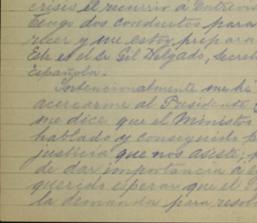 crisis el recurrir a entrevis
Tengo dos conductos para
y me estoy prepara
Este es el Sr Gil Delgado, Secret
Española.
me ha
acercarme al Presidente
me dice que el Ministro
hablado y conseguido
justicia que nos asiste,
de dar importancia a
querido esperar que el P
la demanda para resol